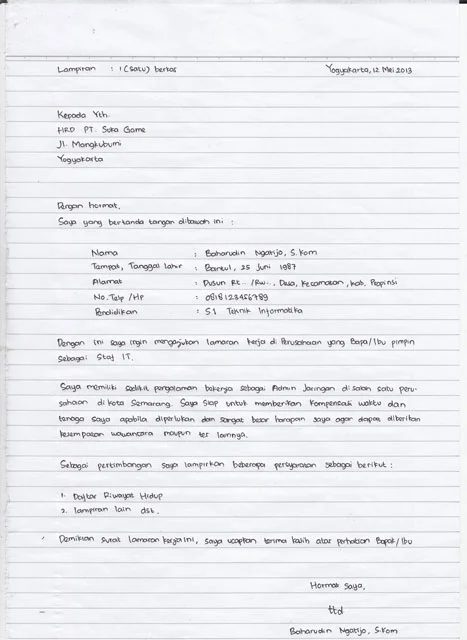 Lampiran : 1 (satu) berkas Yogyakarta, 12 Mei 2013
Kepada Yth.
HRD PT. Suka Game
Jl. Mangkubumi
Yogyakarta
Dengan hormat,
Saya yang bertanda tangan dibawah ini :
Nama : Baharudin Ngatijo, S.Kom
Tempat, Tanggal lahir : Bantul, 25 Juni 1987
Alamat : Dusun Rt.. /Rw.., Desa, Kecamatan, Kab, Propinsi
No. Telp /HP : 0818123456789
Pendidikan : S1 Teknik Informatika
Dengan ini saya ingin mengajukan lamaran kerja di Perusahaan yang Bapa/Ibu pimpin
sebagai Staf IT.
Saya memiliki sedikit pengalaman bekerja sebagai Admin Jaringan di salah satu peru-
sahaan di kota Semarang. Saya Siap untuk memberikan kompensasi waktu dan
tenaga saya apabila diperlukan dan sangat besar harapan saya agar dapat diberikan
kesempatan wawancara maupun tes lainnya.
Sebagai pertimbangan saya lampirkan beberapa persyaratan sebagai berikut :
1. Daftar Riwayat Hidup
2. lampiran lain dst.
Demikian surat lamaran kerja ini, saya ucapkan terima kasih atas perhatian Bapak/Ibu
Hormat Saya,
ttd
Baharudin Ngatijo, S.Kom